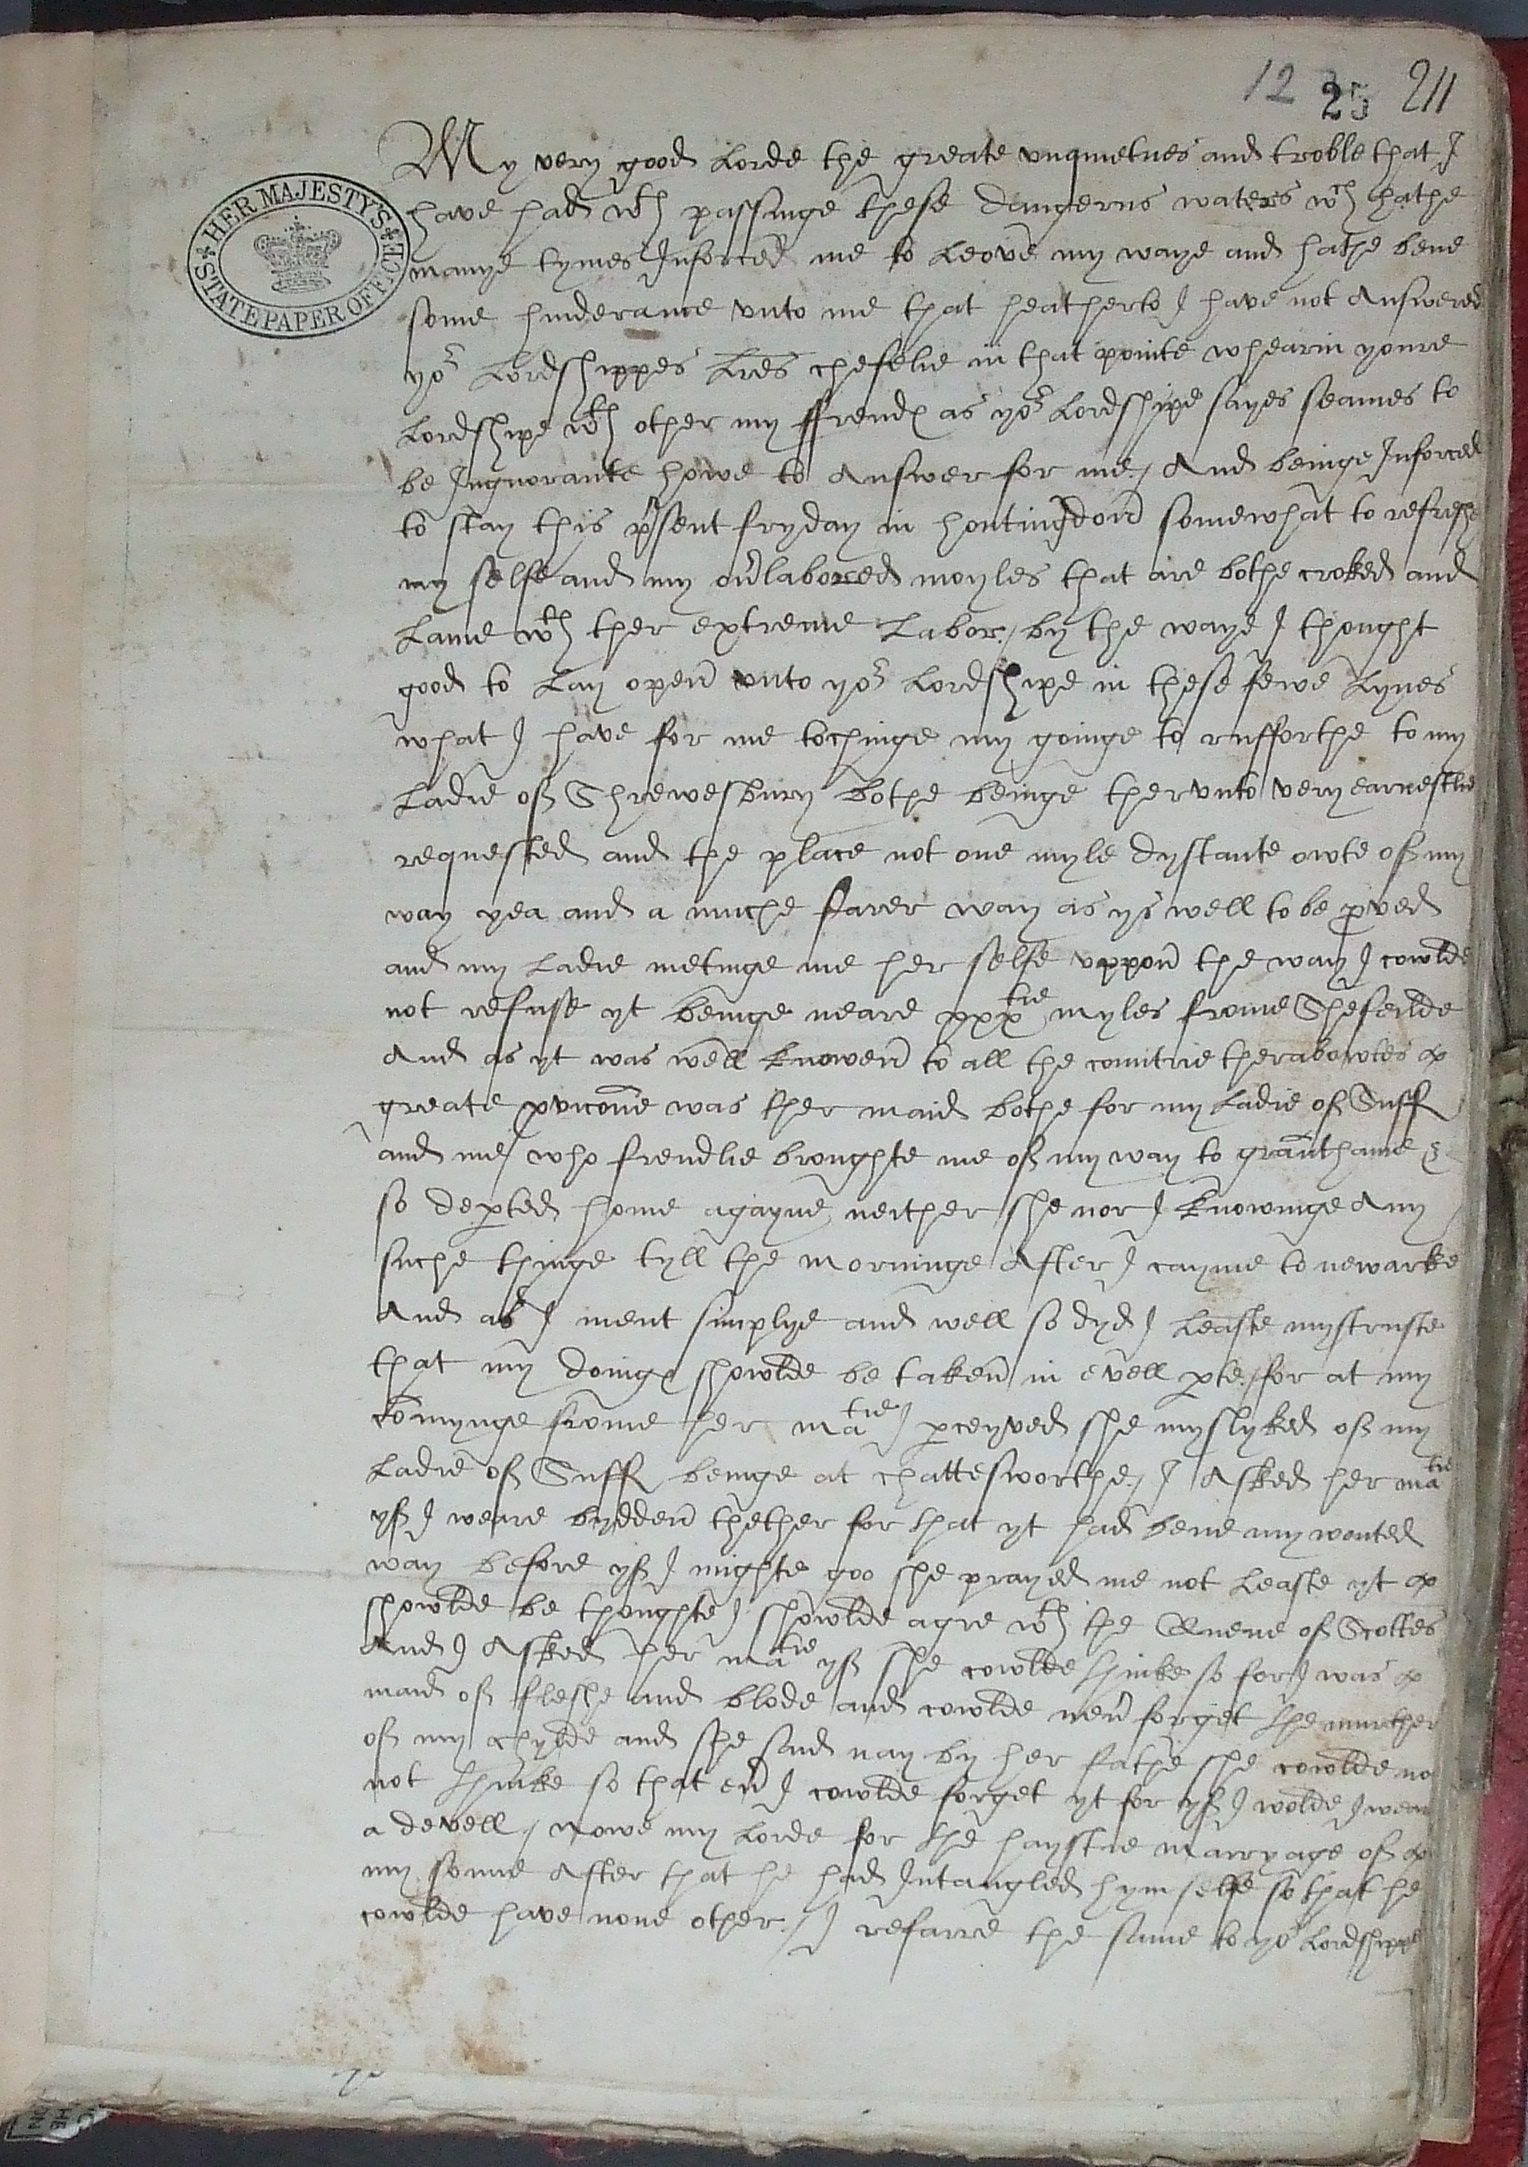 12 25 211
HER MAJESTY'S STATE PAPER OFFICE
My very good Lorde the greate vnquietnes and troble that I
have had wth passinge these dangerus waters wch hathe
manye tymes Inforced me to Leave my waye and hathe bene
some hinderance vnto me that heatherto I have not Answered
yor Lordshippes Lres chefelie in that pointe whearin youre
Lordshipe wth other my ffrends as yor Lordshipe sayes seames to
be Ingnorante howe to Answer for me / And beinge Inforced
to stay this psent fryday in hontingdon somewhat to refreshe
my selfe and my ouerlabored moyles that are bothe croked and
Lame wth ther extreme Labor / by the waye I thought
good to Lay open vnto yor Lordshipe in these fewe Lynes
what I have for me tochinge my goinge to rufforthe to my
Ladie of Shrewesbury bothe beinge thervnto very earnestlie
requested and the place not one myle dystante owte of my
way yea and a muche farer way as ys well to be pved
and my Ladie metinge me her selfe uppon the way I cowlde
not refuse yt beinge neare xxxtie myles frome Shefeilde
And as yt was well knowen to all the countrie therabowtes a
great pvicone was ther maid bothe for my Ladie of Suff
and me / who frendlie broughte me of my way to granthame &
so depted home agayne neither she nor I knowinge Any
suche thinge tyll the morninge After I cayme to newarke
And as I ment simplye and well so dyd I Leaste mystruste
that my doings showlde be taken in evell pte / for at my
comynge frome her matie I pceyved she myslyked of my
Ladie of Suff beinge at chattesworthe / I Asked her matie
yf I weare bydden thether for that yt had bene my wonted
way before yf I mighte goo she prayed me not Leaste yt a
showlde be thoughte I showlde agre wth the Quene of Scottes
And I Asked her matie yf she cowlde thinke so for I was a
maid of fleshe and blode and cowlde neuer forget the murther
of my chylde and she said nay by her fathe she cowlde no
not thinke so that euer I cowlde forget yt for yf I wolde I wear
a devell / Nowe my Lorde for the haystie marryage of a
my sonne After that he had Intangled hym selfe so that he
cowlde have none other / I refarre the same to yor Lordshippes